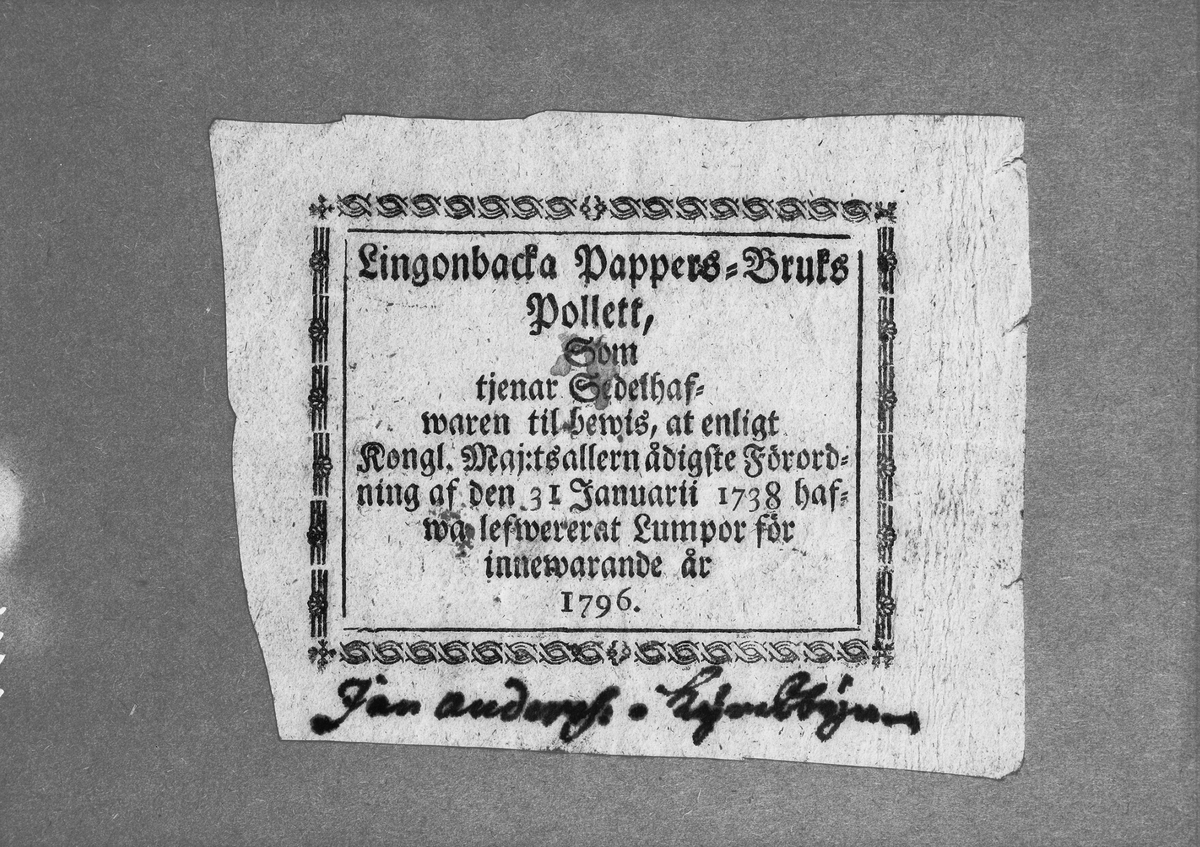 Lingonbacka Pappers-Bruks
Pollett,
Som
tjenar Sedelhaf-
waren til bewis, at enligt
Kongl. Maj:ts allernådigste Förord-
ning af den 31 Januarii 1738 haf-
wa lefwererat Lumpor för
innewarande år
1796.
Jan anderss.